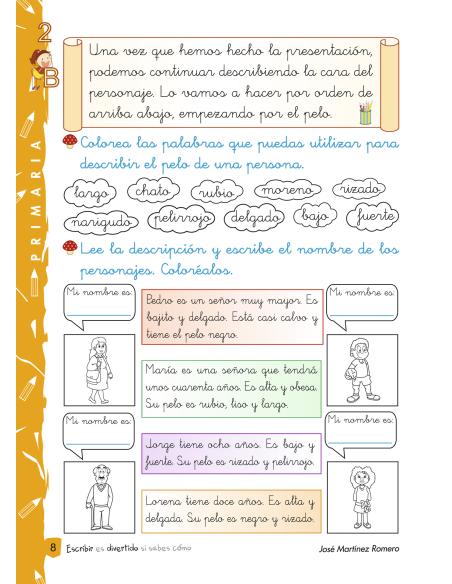 2
B
PRIMARIA
Una vez que hemos hecho la presentación,
podemos continuar describiendo la cara del
personaje. Lo vamos a hacer por orden de
arriba abajo, empezando por el pelo.
Colorea las palabras que puedas utilizar para
describir el pelo de una persona.
largo chato rubio moreno rizado
narigudo pelirrojo delgado bajo fuerte
Lee la descripción y escribe el nombre de los
personajes. Coloréalos.
Mi nombre es:
Pedro es un señor muy mayor. Es
bajito y delgado. Está casi calvo y
tiene el pelo negro.
Mi nombre es:
María es una señora que tendrá
unos cuarenta años. Es alta y obesa.
Su pelo es rubio, liso y largo.
Mi nombre es:
Jorge tiene ocho años. Es bajo y
fuerte. Su pelo es rizado y pelirrojo.
Mi nombre es:
Lorena tiene doce años. Es alta y
delgada. Su pelo es negro y rizado.
8 Escribir es divertido si sabes cómo José Martínez Romero